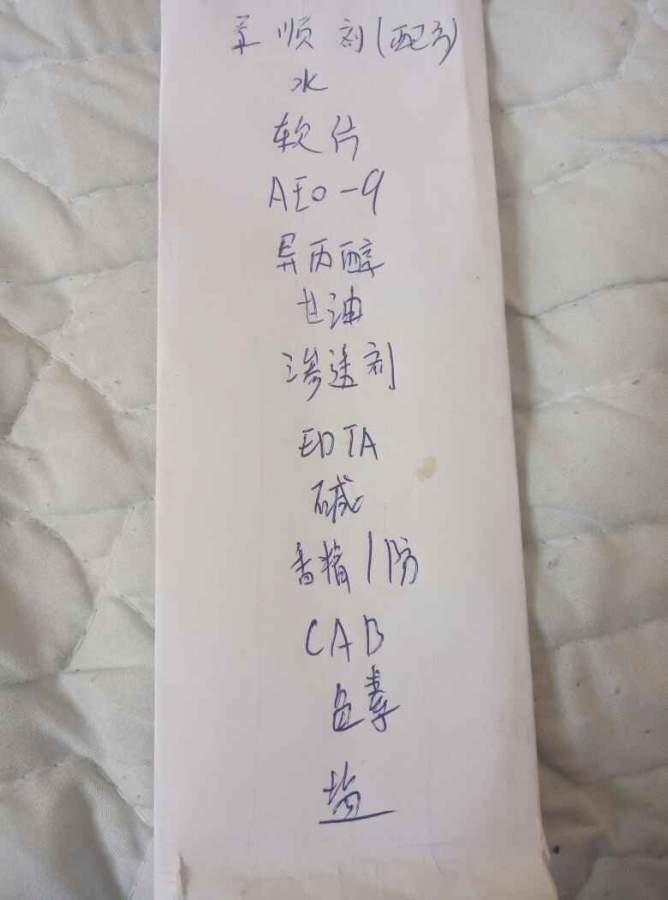 柔顺剂(配方)
水
软片
AEO-9
异丙醇
甘油
渗透剂
EDTA
碱
香精/防
CAB
色素
盐